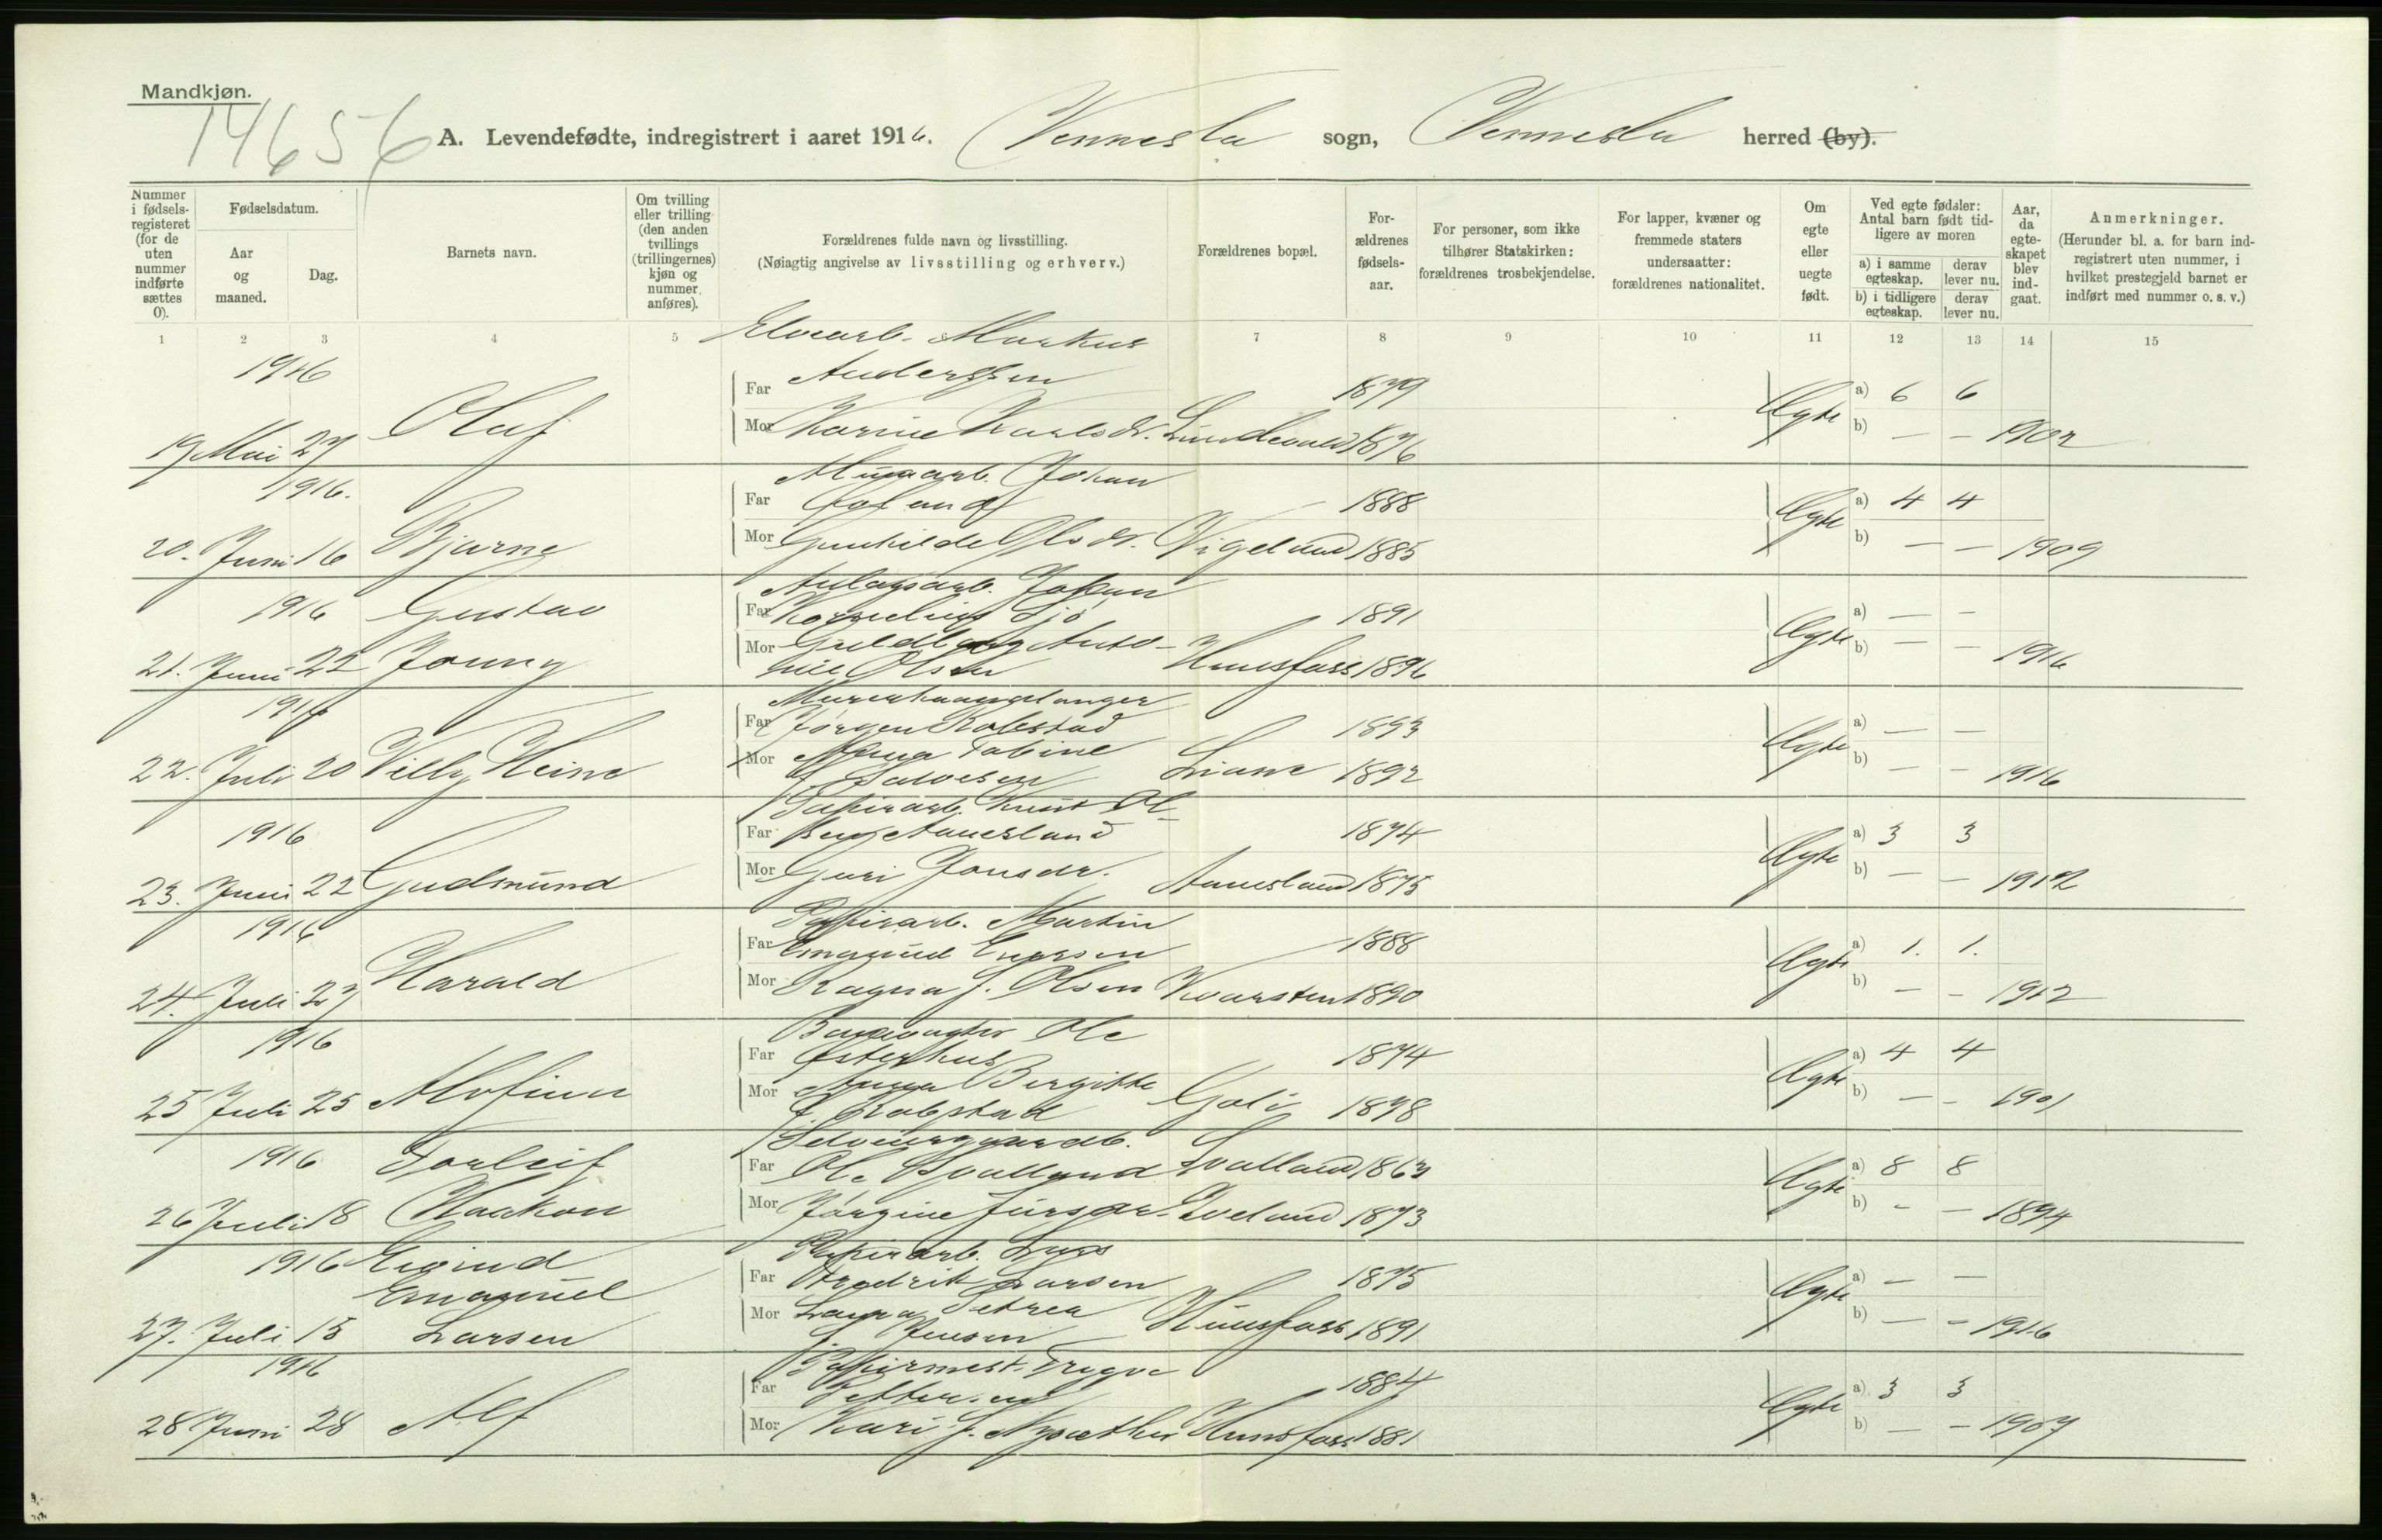 Mandkjøn.
14656
A. Levendefødte, indregistrert i aaret 1916. Vennesla sogn, Vennesla herred (by).
Nummer i fødsels-registeret (for de uten nummer indførte sættes 0).
Fødselsdatum.
Aar og maaned.
Dag.
Barnets navn.
Om tvilling eller trilling (den anden tvillings (trillingernes) kjøn og nummer anføres).
Forældrenes fulde navn og livsstilling.
(Nøiagtig angivelse av livsstilling og erhverv.)
Forældrenes bopæl.
For-ældrenes fødsels-aar.
For personer, som ikke tilhører Statskirken: forældrenes trosbekjendelse.
For lapper, kvæner og fremmede staters undersaatter: forældrenes nationalitet.
Om egte eller uegte født.
Ved egte fødsler: Antal barn født tid-ligere av moren
a) i samme egteskap.
derav lever nu.
b) i tidligere egteskap.
derav lever nu.
Aar, da egte-skapet blev ind-gaat.
Anmerkninger.
(Herunder bl. a. for barn ind-registrert uten nummer, i hvilket prestegjeld barnet er indført med nummer o. s. v.)
1 2 3 4 5 6 7 8 9 10 11 12 13 14 15
1916
Elvearb. Markus
Far Anderssen 1879
19 Mai 27 Olaf
Mor Karine Karlsdr. Lindevald 1876
Ægte a) 6 6
b) — — 1902
1916.
Far Johan 1888
20. Juni 16 Bjarne
Mor Gunhilde Olsdr. Vigeland 1885
Ægte a) 4 4
b) — — 1909
1916 Gustav
Anlægsarb. Johan
Far Kornelius Sjø 1891
21. Juni 22 Joung
Mor Guldborg Anto-
nie Olsen Hunsfoss 1896
Ægte a) — —
b) — — 1916
1916
Murerhaandlanger
Far Jørgen Robstad 1893
22. Juli 20 Villy Heine
Mor Anna Tabine
f. Salvesen Liane 1892
Ægte a) — —
b) — — 1916
1916
Papirarb. Knut Ol-
Far Berg Aanesland 1874
23. Juni 22 Gudmund
Mor Guri Jonsdr. Aanesland 1875
Ægte a) 3 3
b) — — 1912
1916
Papirarb. Martin
Far Emanuel 1888
24. Juli 27 Harald
Mor Ragna f. Olsen Kvarsten 1890
Ægte a) 1. 1.
b) — — 1912
1916
Banevogter Ole
Far Østerhus 1874
25 Juli 25 Alvfinn
Mor Anna Bergitte
f. Robstad 1878
Ægte a) 4 4
b) — — 1901
1916 Torleif
Selveiergaardb.
Far Ole Kvalland 1863
26 Juli 18 Haakon
Mor Jørgine Iveland 1873
Ægte a) 8 8
b) - — 1894
1916 Eivind
Emanuel
Papirarb. Lars
Far Fredrik Larsen 1875
27. Juli 15 Larsen
Mor Laura Petrea
f. Jensen Hunsfoss 1891
Ægte a) — —
b) — — 1916
1916
Papirmest. Trygve
Far Pettersen 1884
28 Juni 28 Alf
Mor Kari f. Hunsfoss 1881
Ægte a) 3 3
b) — — 1907